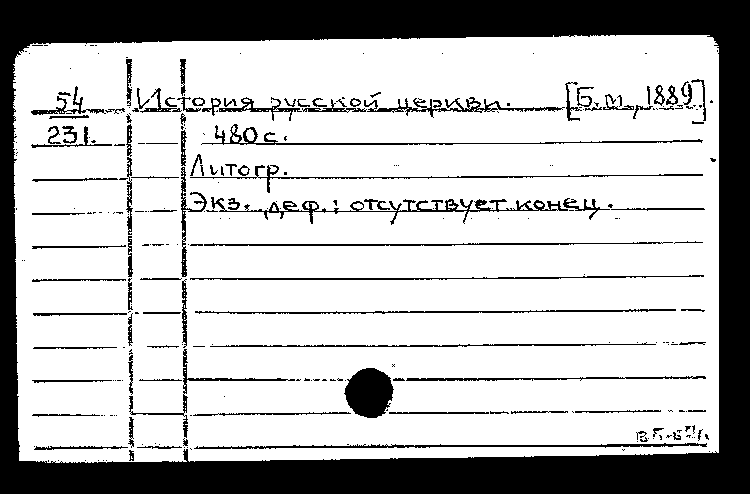 54 История русской церкви. [Б.м., 1889].
231. 480 с.
Литогр.
Экз. деф.: отсутствует конец.